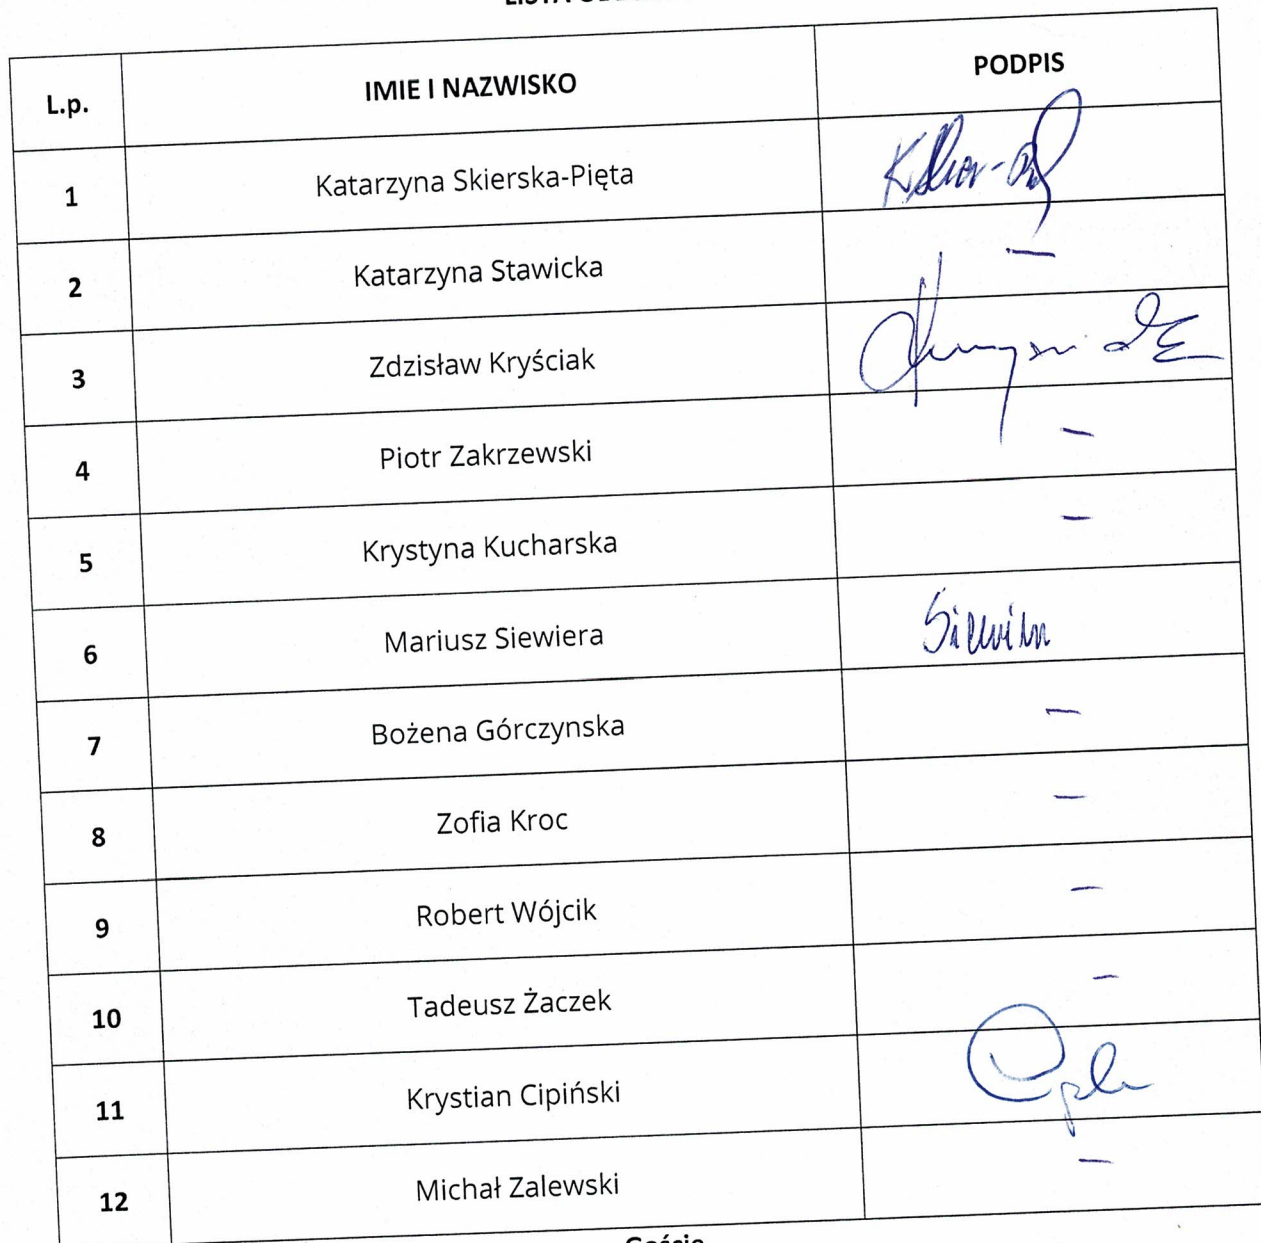 L.p. IMIE I NAZWISKO PODPIS
1 Katarzyna Skierska-Pięta
2 Katarzyna Stawicka –
3 Zdzisław Kryściak
4 Piotr Zakrzewski –
5 Krystyna Kucharska –
6 Mariusz Siewiera
7 Bożena Górczynska –
8 Zofia Kroc –
9 Robert Wójcik –
10 Tadeusz Żaczek –
11 Krystian Cipiński
12 Michał Zalewski –